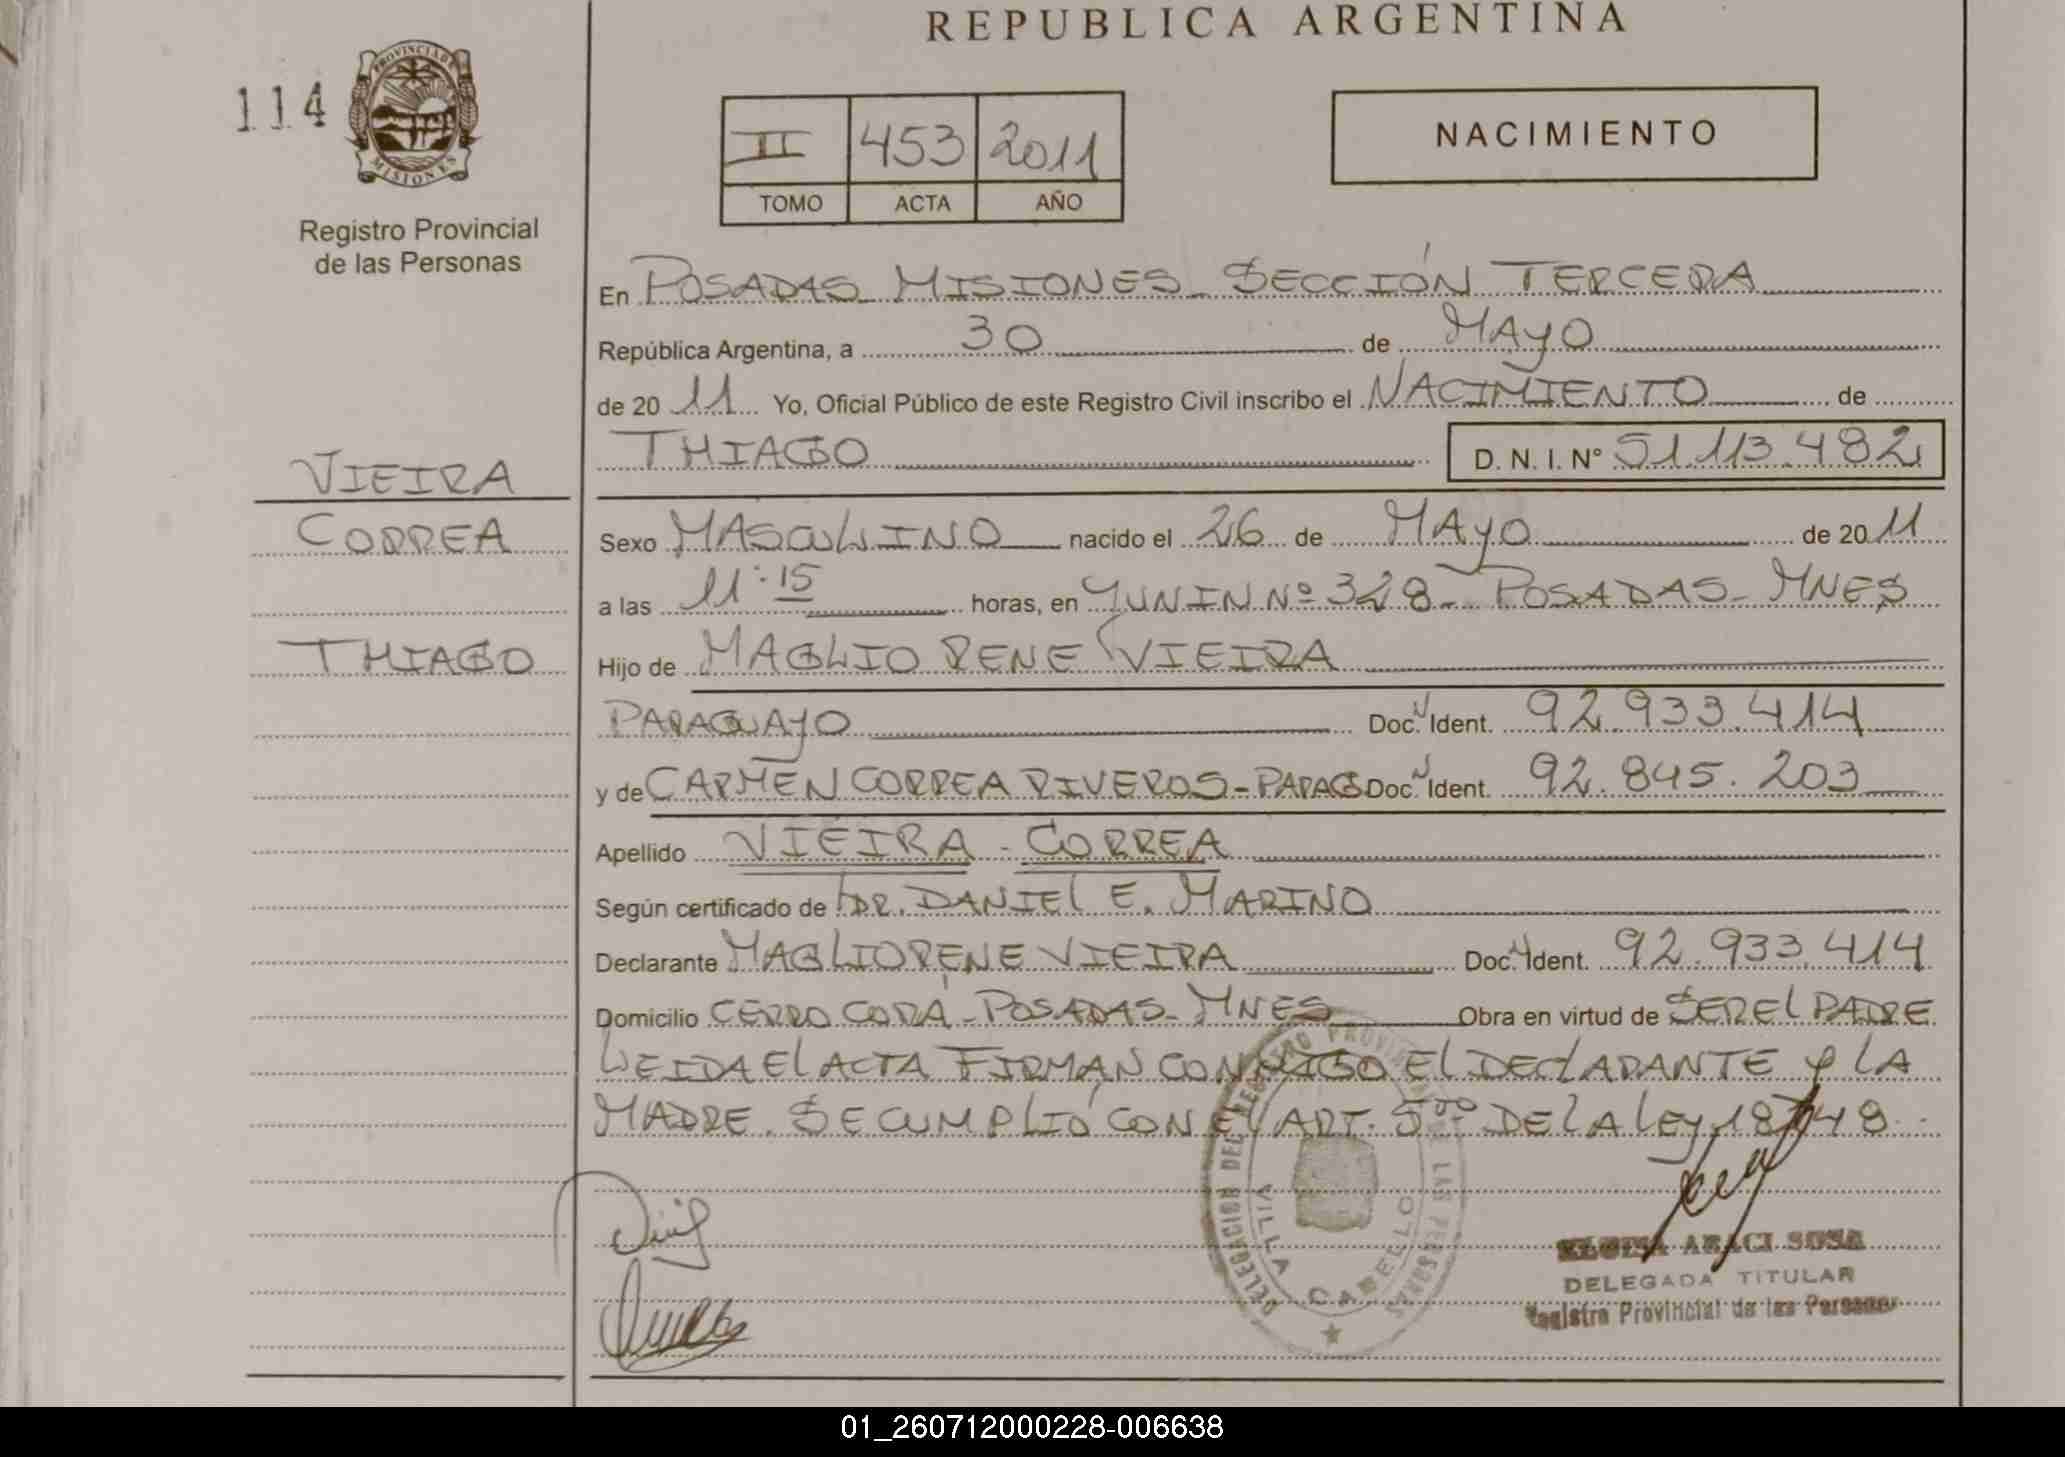 REPUBLICA ARGENTINA
114
PROVINCIA DE
MISIONES
Registro Provincial
de las Personas
II 453 2011
TOMO ACTA AÑO
NACIMIENTO
En POSADAS MISIONES - SECCIÓN TERCERA
República Argentina, a 30 de MAYO
de 2011 Yo, Oficial Público de este Registro Civil inscribo el NACIMIENTO de
THIAGO D. N. I. N° 51.113.482
VIEIRA
CORREA
THIAGO
Sexo MASCULINO nacido el 26 de MAYO de 2011
a las 11:15 horas, en YUNIN Nº 328 - POSADAS - MNES
Hijo de MAGLIO RENE VIEIRA
PARAGUAYO Doc. Ident. 92.933.414
y de CARMEN CORREA RIVEROS - PARAG Doc. Ident. 92.845.203
Apellido VIEIRA - CORREA
Según certificado de DR. DANIEL E. MARINO
Declarante MAGLIO RENE VIEIRA Doc. Ident. 92.933.414
Domicilio CERRO CORÁ - POSADAS - MNES Obra en virtud de SER EL PADRE
LEIDA EL ACTA FIRMAN CONMIGO EL DECLARANTE y LA
MADRE. SE CUMPLIÓ CON EL ART. 5to DE LA LEY 18248
DELEGACION DEL REGISTRO PROVINCIAL DE LAS PERSONAS
VILLA CABELLO
ELOISA ARACI SOSA
DELEGADA TITULAR
Registro Provincial de las Personas
01_260712000228-006638